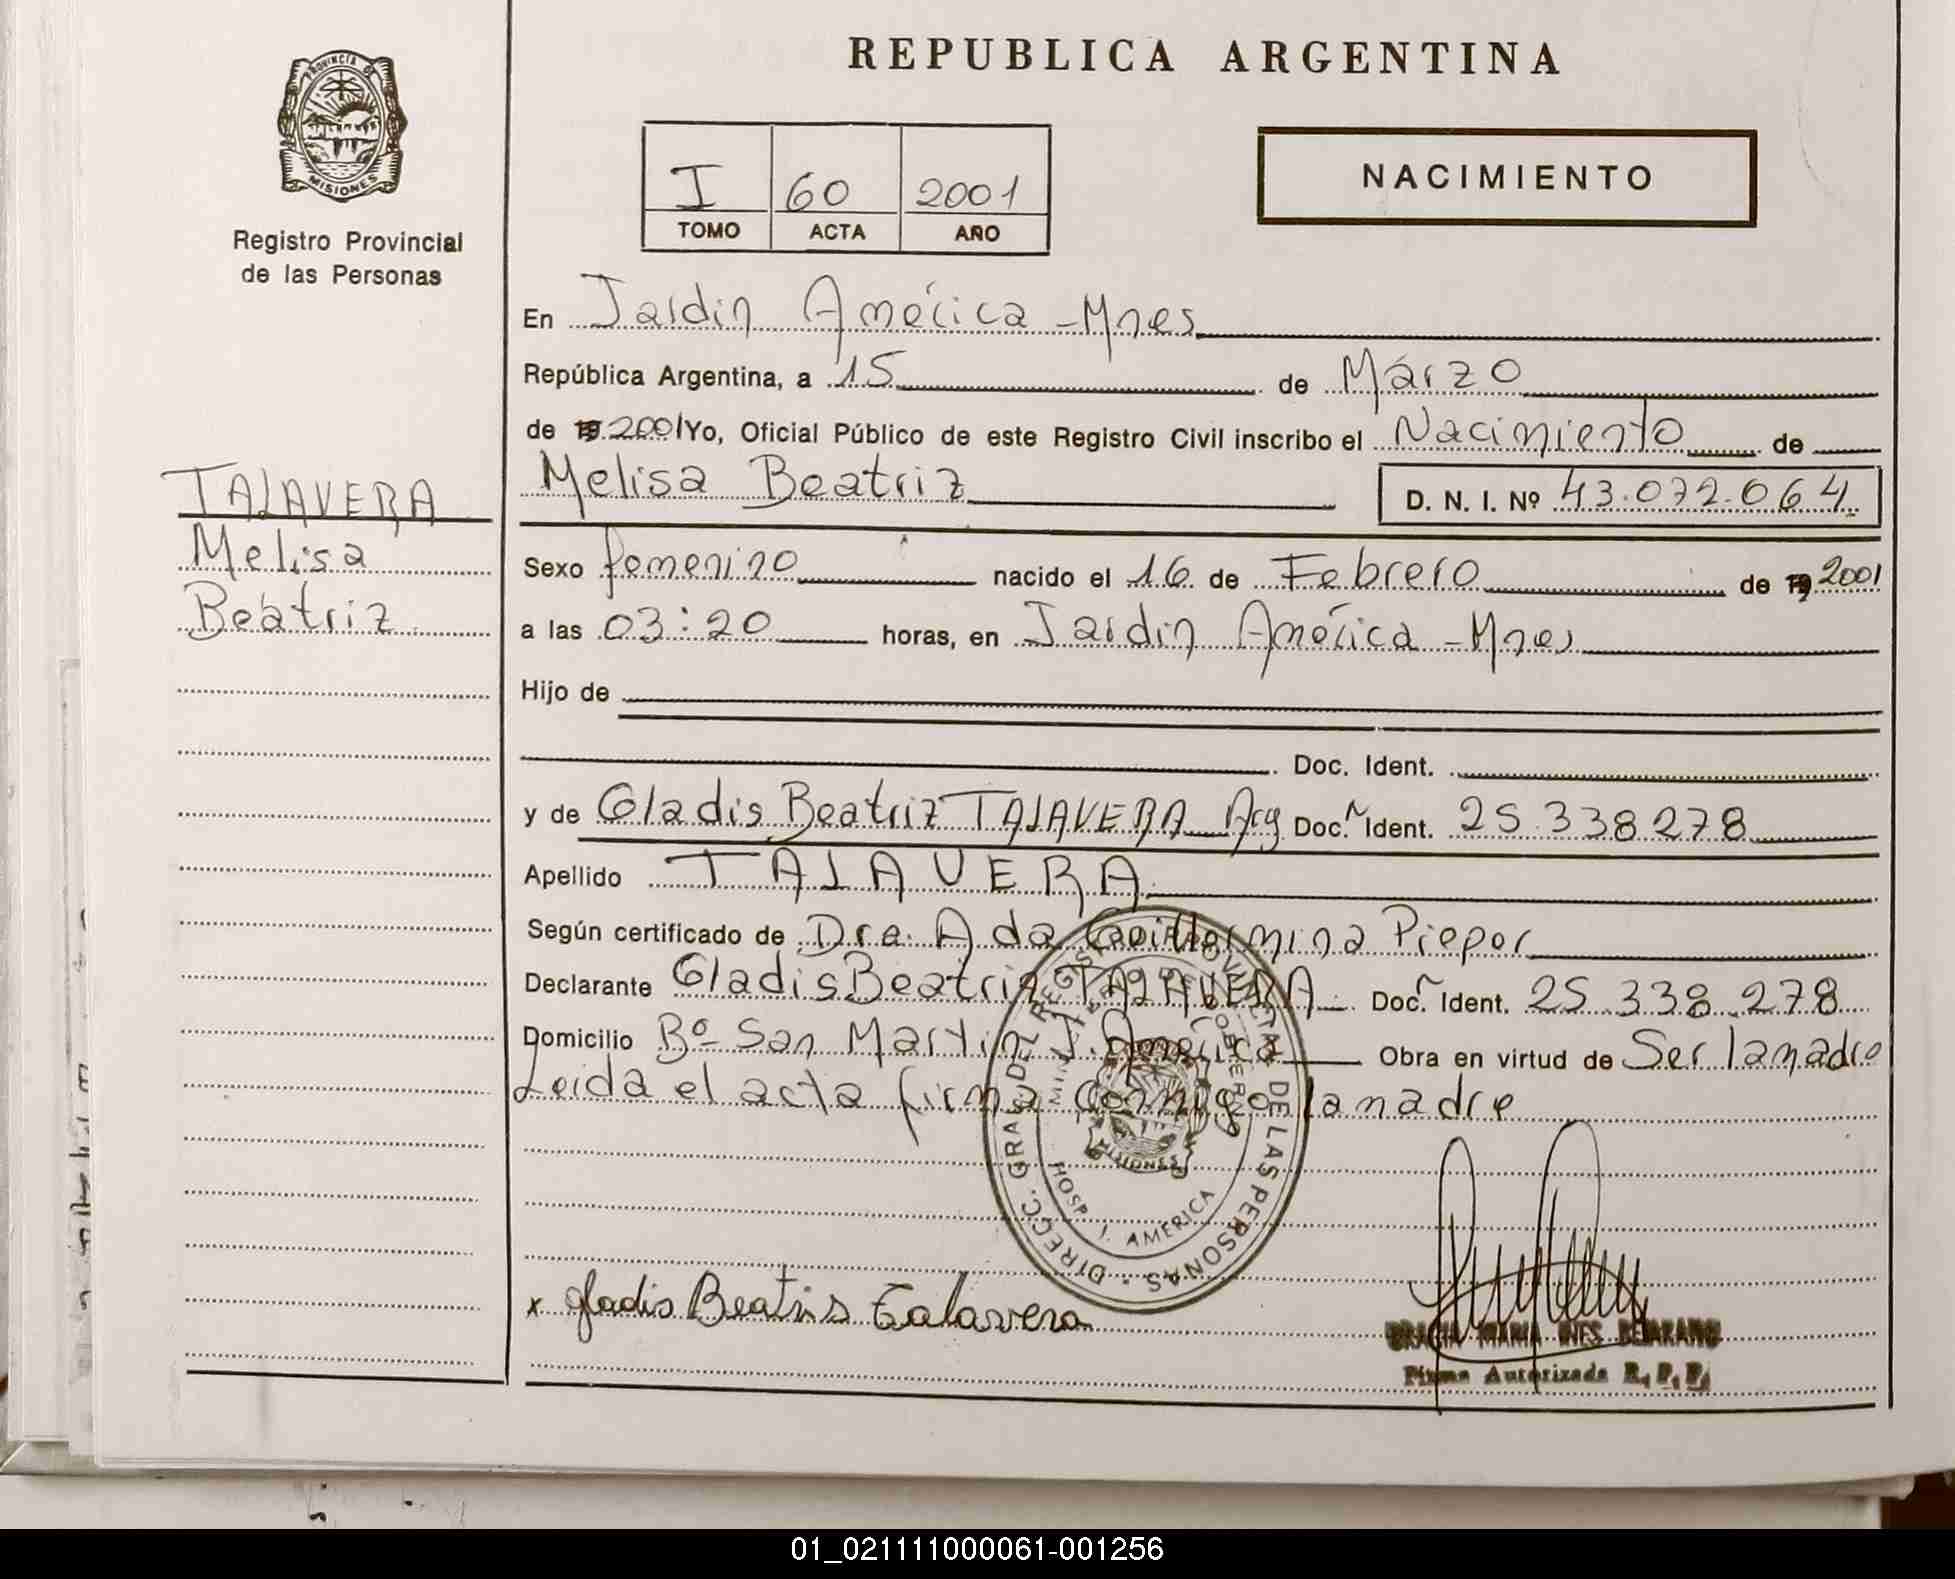 REPUBLICA ARGENTINA
PROVINCIA DE
MISIONES
Registro Provincial
de las Personas
I 60 2001
TOMO ACTA AÑO
NACIMIENTO
En Jardin América - Mnes
República Argentina, a 15 de Marzo
de 19 2001 Yo, Oficial Público de este Registro Civil inscribo el Nacimiento de
Melisa Beatriz D. N. I. Nº 43.072.064
TALAVERA
Melisa
Beatriz
Sexo femenino nacido el 16 de Febrero de 19 2001
a las 03:20 horas, en Jardin América - Mnes
Hijo de
Doc. Ident.
y de Gladis Beatriz TALAVERA Arg Doc. Ident. 25.338.278
Apellido TALAVERA
Según certificado de Dra. Ada Guillermina Pieper
Declarante Gladis Beatriz TALAVERA Doc. Ident. 25.338.278
Domicilio Bº San Martin J. América Obra en virtud de Ser la madre
Leida el acta firma conmigo la madre
DIRECC. GRAL. DEL REGISTRO PROVINCIAL DE LAS PERSONAS
MINISTERIO DE GOBIERNO
MISIONES
HOSP. J. AMERICA
x gladis Beatris Talavera
MARIA INES
Firma Autorizada R. P. P.
01_021111000061-001256